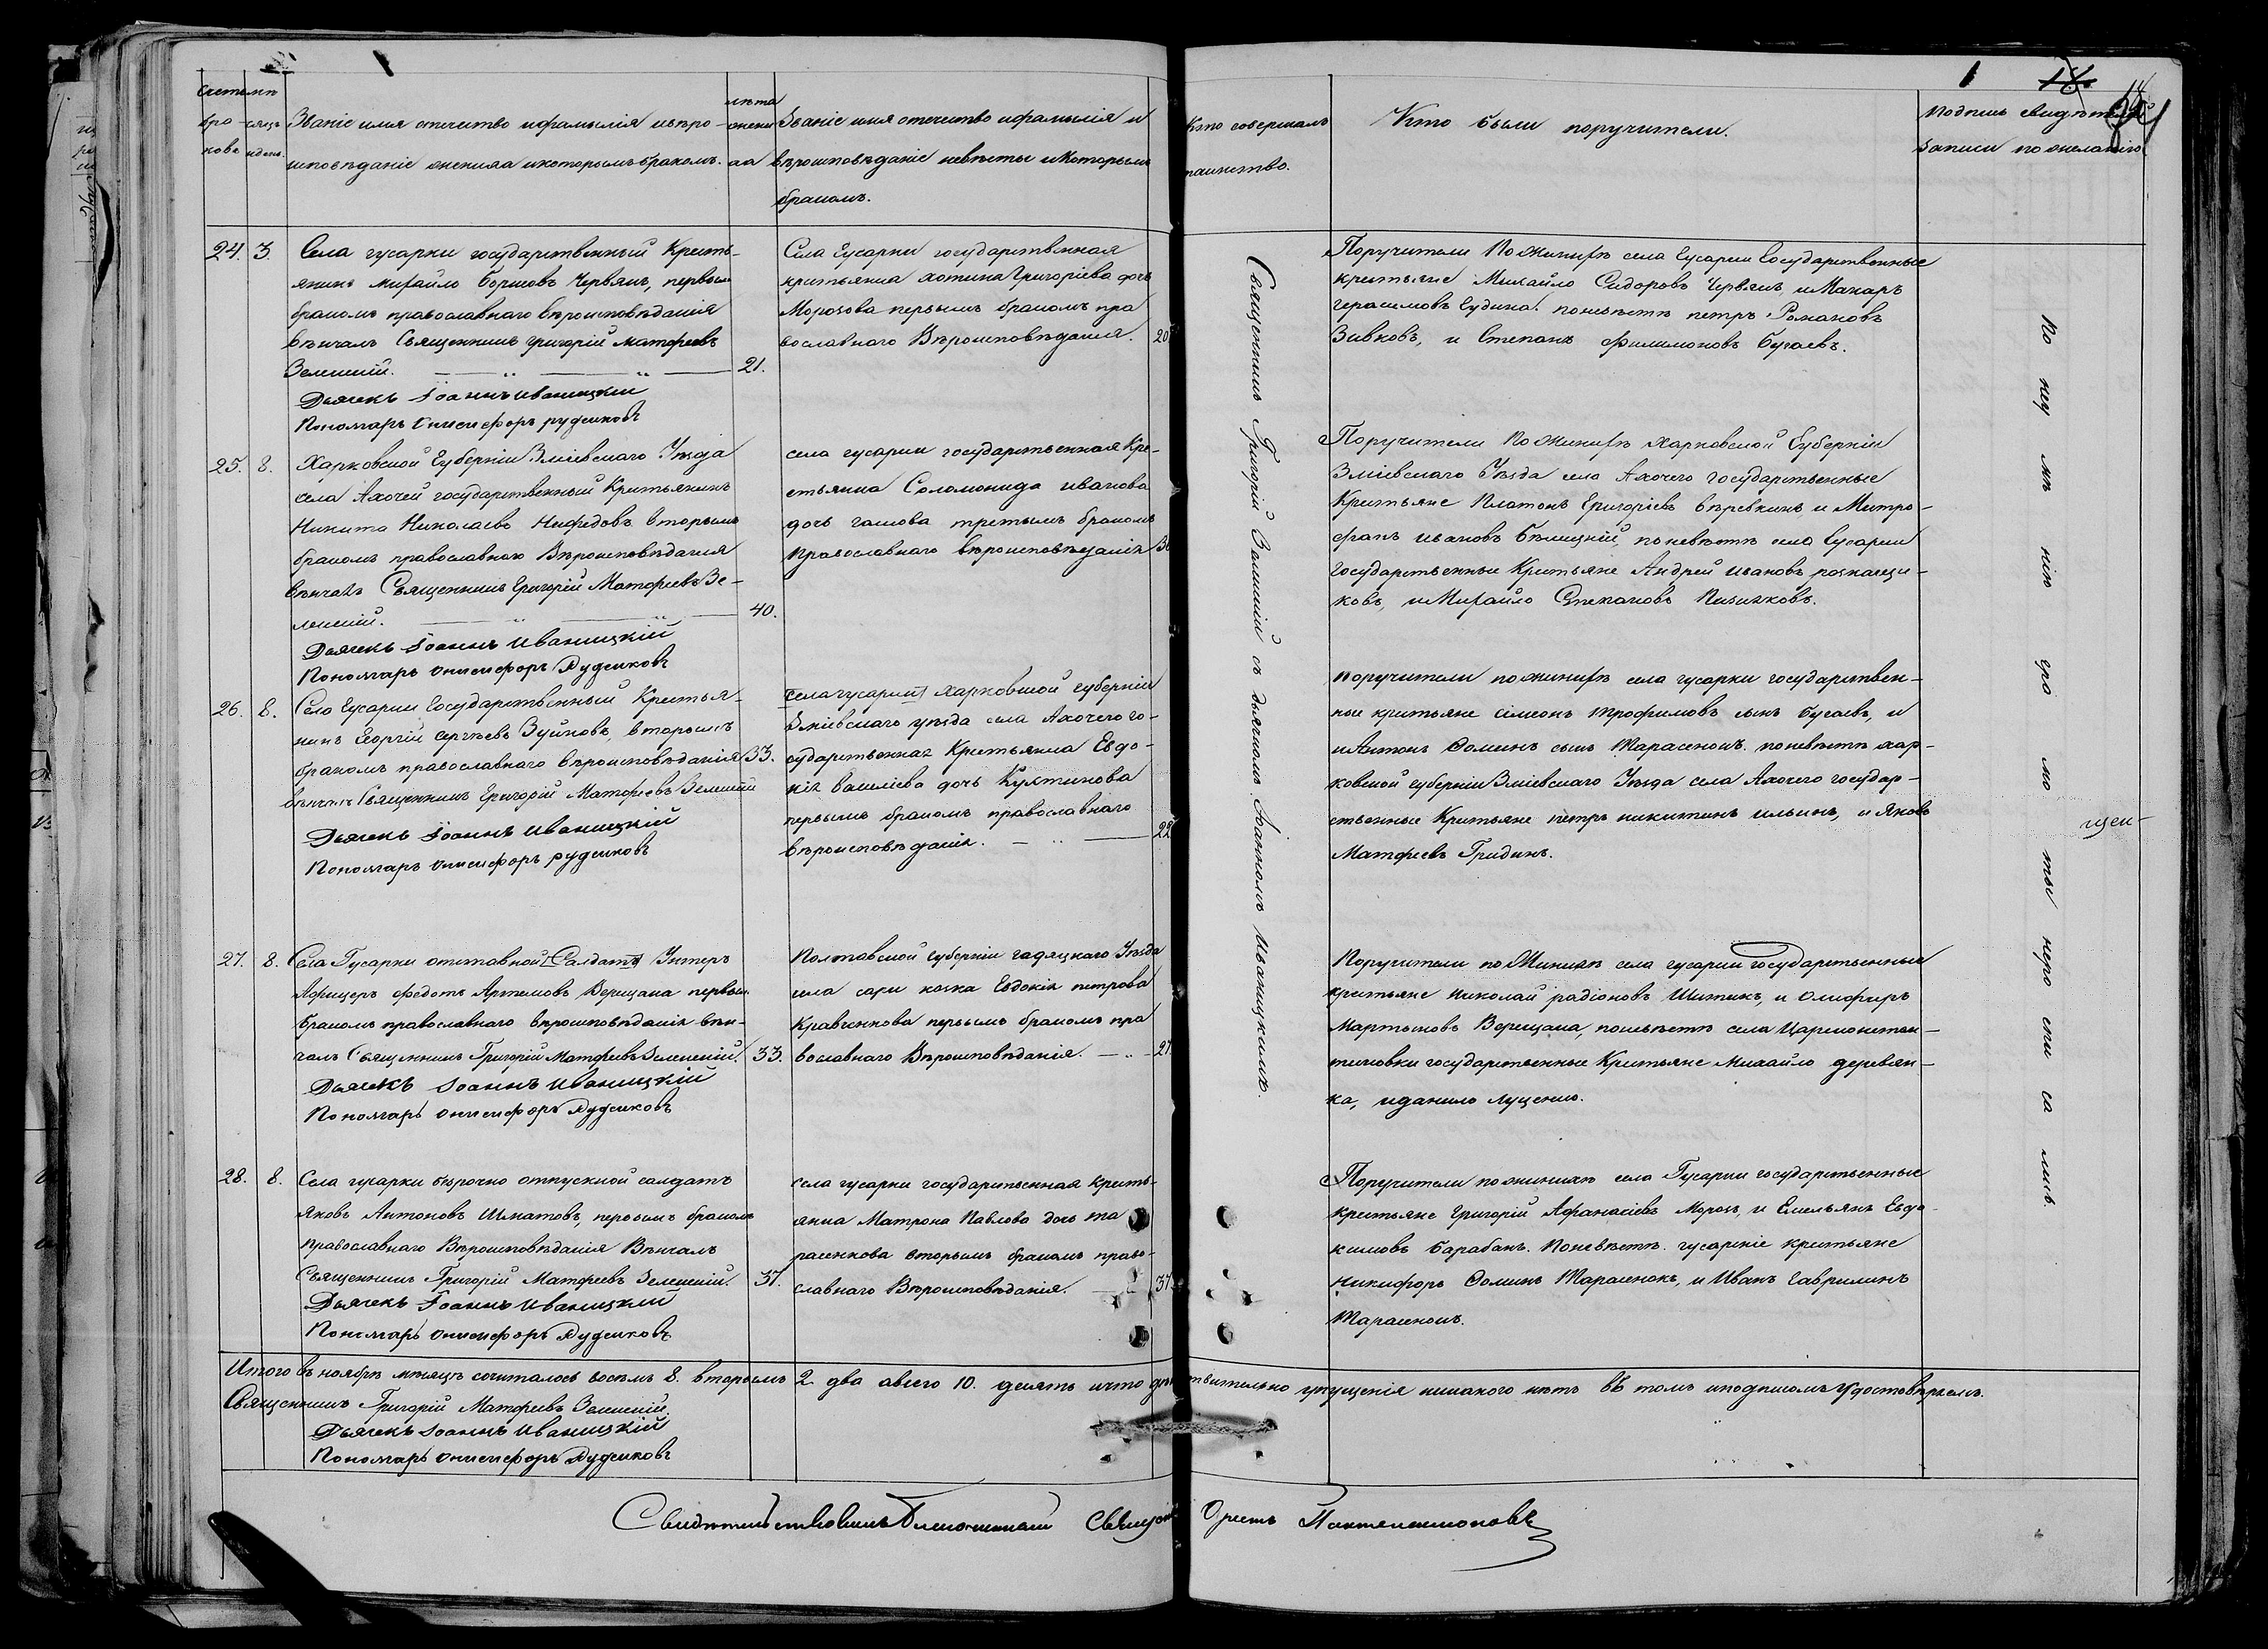 Счетъ бра-ковъ
мѣ-сяцъ и день
Званіе имя отчество ифамилія ивѣро-
исповѣданіе жениха икоторымъ бракомъ.
лѣта жениха
Званіе имя отечество ифамилія и
вѣроисповѣданіе невѣсты икоторымъ
бракомъ.
Кто совершалъ
таинство.
Кто были поручители.
Подпись свидѣтелей
записи по желанію
24. 3.
Села гусарки государственный Кресть-
янинъ михайло Борисовъ Червякъ, первымъ
бракомъ православнаго вѣроисповѣданія
вѣнчалъ Священникъ григорій матфеевъ
Зеленскій. 21.
Дьячекъ Іоаннъ иваницкій
Пономарь Онисифоръ рудеиковъ
Села Гусарки государственная
крестьянка хотина Григоріева дочь
Морозова первымъ бракомъ пра
вославнаго Вѣроисповѣданія. 20
Поручители По женихѣ села Гусарки Государственные
крестьяне Михайло Сидоровъ Червякъ, иМакаръ
герасимовъ Гудина. поневѣстѣ петръ Романовъ
Зивковъ, и Степанъ филимоновъ Бугаевъ.
25. 8.
Харковской Губерніи Зміевскаго Уѣзда
села Ахочей государственный Крестьянинъ
Никита Николаевъ Нифедовъ вторымъ
бракомъ православнаго Вѣроисповѣданія
вѣнчалъ Священникъ Григорій МатфеевъЗе-
ленскій. 40.
Дьячекъ Іоаннъ иваницкій
Пономарь онисифоръ Рудеиковъ
села гусарки государственная Кре-
стьянка Соломонида иванова
дочь гашова третьимъ бракомъ
Православнаго вѣроисповѣданія
Поручители По женихѣ Харковской Губерніи
Зміевскаго Уѣзда села Ахочего государственные
Крестьяне Платонъ Григоріевъ вѣревкинъ, и Митро-
фанъ ивановъ Бѣлицкій, поневѣстѣ села Гусарки
государственные Крестьяне Андрей ивановъ
ковъ, иМихайло Степановъ
26. 8.
Села Гусарки Государственный Крестья-
нинъ Георгій сергѣевъ Зуйковъ, вторымъ
бракомъ православнаго вѣроисповѣданія 33.
вѣнчалъ Священникъ Григорій Матфеевъ Зеленскій
Дьячекъ Іоаннъ иваницкій
Пономарь онисифоръ рудеиковъ
села гусарки Харковской губерніи
Зміевскаго уѣзда села Ахочего го-
сударственная Крестьянка Евдо-
кія василіева дочь Култикова
первымъ бракомъ православнаго
вѣроисповѣданія. 22
поручители по женихѣ села гусарки государствен-
ные крестьяне симеонъ трофимовъ сынъ бугаевъ, и
иАнтонъ Фоминъ сынъ Тарасенокъ. поневѣстѣ хар-
ковской губерніи Зміевскаго Уѣзда села Ахочего государ-
ственные Крестьяне петръ никитинъ ильинъ, и Яковъ
Матфеевъ Гридинъ.
27. 8.
Села Гусарки отставной Салдатъ Унтеръ
Афицеръ федотъ Артемовъ Верещака первым.
бракомъ православнаго вѣроисповѣданія вѣн-
чалъ Священникъ Григорій Матфеевъ Зеленскій. 33.
Дьячекъ Іоаннъ иваницкій
Пономарь онисифоръ Рудеиковъ
Полтавской Губерніи гадяцкаго Уѣзда
села сари козка Евдокія петрова
Кравченкова первымъ бракомъ пра
вославнаго Вѣроисповѣданія. 27
Поручители по Женихѣ села гусарки государственные
крестьяне николай радіоновъ Шитикъ, и олифиръ
Мартыновъ Верещака, поневѣстѣ села Цареконстан-
тиновки государственные Крестьяне Михайло деревян-
ка, иданило луценко.
28. 8.
Села гусарки безрочно отпускной салдатъ
яковъ Антоновъ Шматовъ, первымъ бракомъ
православнаго Вѣроисповѣданія Вѣнчалъ
Священникъ Григорій Матфеевъ Зеленскій. 37.
Дьячекъ Іоаннъ иваницкій
Пономарь онисифоръ Рудеиковъ
села гусарки государственная Кресть-
янка Матрона Павлова дочь та
расенкова вторымъ бракомъ право-
славнаго Вѣроисповѣданія. 37
Поручители поженихѣ села Гусарки государственные
крестьяне Григорій Афанасіевъ Морозъ, и Емельянъ Евдо-
кимовъ Барабанъ. Поневѣстѣ. гусарскіе крестьяне
никифоръ Фоминъ Тарасенокъ, и Иванъ Гаврилинъ
Тарасенокъ.
Священникъ Григорій Зеленскій съ дьячкомъ Іоанномъ Иваницкимъ.
По неу мѣ нію гра мо ты неро спи са лись
Итого въ ноябрѣ мѣсяцѣ сочиталось восемъ 8. вторымъ 2 два авсего 10. десять ичто дѣйствительно упущенія никакого нѣтъ въ томъ иподписомъ удостовѣряемъ.
Священникъ Григорій Матфеевъ Зеленскій.
Дьячекъ Іоаннъ иваницкій
Пономарь онисифоръ Рудеиковъ
Свидѣтельствовалъ Благочинный Священникъ Орестъ Пантелеимоновъ